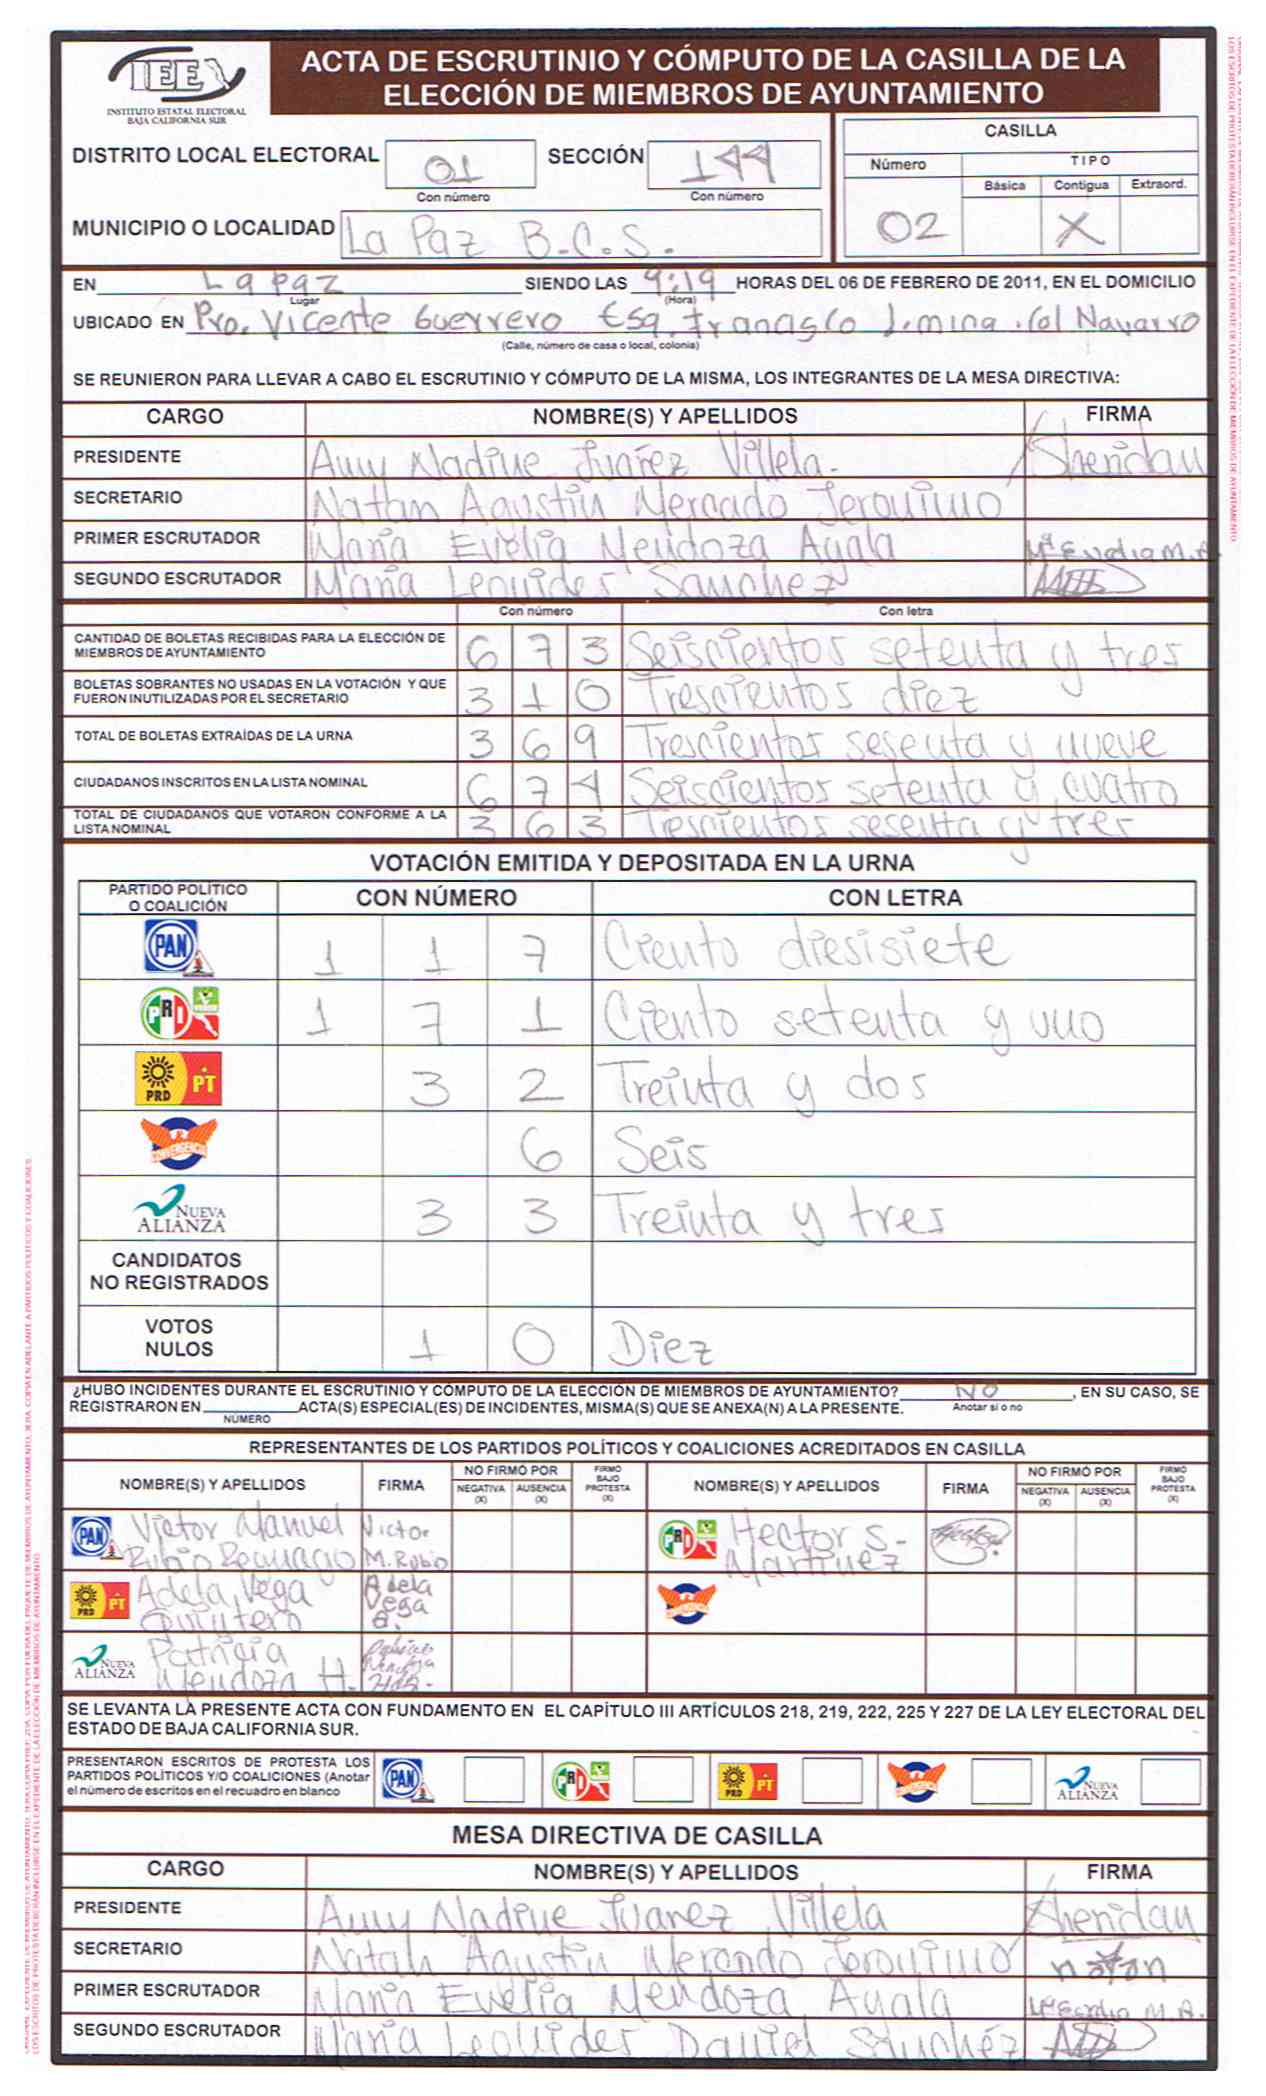 IEE
INSTITUTO ESTATAL ELECTORAL
BAJA CALIFORNIA SUR
ACTA DE ESCRUTINIO Y CÓMPUTO DE LA CASILLA DE LA
ELECCIÓN DE MIEMBROS DE AYUNTAMIENTO
DISTRITO LOCAL ELECTORAL 01 SECCIÓN 144
Con número Con número
MUNICIPIO O LOCALIDAD La Paz B.C.S.
CASILLA
Número TIPO
Básica Contigua Extraord.
02 X
EN La paz SIENDO LAS 9:19 HORAS DEL 06 DE FEBRERO DE 2011, EN EL DOMICILIO
Lugar (Hora)
UBICADO EN Pro. Vicente Guerrero Esq. Francisco J. mina . Col Navarro
(Calle, número de casa o local, colonia)
SE REUNIERON PARA LLEVAR A CABO EL ESCRUTINIO Y CÓMPUTO DE LA MISMA, LOS INTEGRANTES DE LA MESA DIRECTIVA:
CARGO NOMBRE(S) Y APELLIDOS FIRMA
PRESIDENTE Amy Nadine Juárez Villela. Sheridan
SECRETARIO Natan Agustin Mercado Jeronimo
PRIMER ESCRUTADOR Maria Evelia Mendoza Ayala Mª Evelia M.A.
SEGUNDO ESCRUTADOR Maria Leonides Sanchez
Con número Con letra
CANTIDAD DE BOLETAS RECIBIDAS PARA LA ELECCIÓN DE
MIEMBROS DE AYUNTAMIENTO 6 7 3 Seiscientos setenta y tres
BOLETAS SOBRANTES NO USADAS EN LA VOTACIÓN Y QUE
FUERON INUTILIZADAS POR EL SECRETARIO 3 1 0 Trescientos diez
TOTAL DE BOLETAS EXTRAÍDAS DE LA URNA 3 6 9 Trescientos sesenta y nueve
CIUDADANOS INSCRITOS EN LA LISTA NOMINAL 6 7 4 Seiscientos setenta y cuatro
TOTAL DE CIUDADANOS QUE VOTARON CONFORME A LA
LISTA NOMINAL 3 6 3 Trescientos sesenta y tres
VOTACIÓN EMITIDA Y DEPOSITADA EN LA URNA
PARTIDO POLÍTICO
O COALICIÓN CON NÚMERO CON LETRA
PAN 1 1 7 Ciento diesisiete
PRI 1 7 1 Ciento setenta y uno
PRD PT 3 2 Treinta y dos
CONVERGENCIA 6 Seis
NUEVA ALIANZA 3 3 Treinta y tres
CANDIDATOS
NO REGISTRADOS
VOTOS
NULOS 1 0 Diez
¿HUBO INCIDENTES DURANTE EL ESCRUTINIO Y CÓMPUTO DE LA ELECCIÓN DE MIEMBROS DE AYUNTAMIENTO? NO , EN SU CASO, SE
REGISTRARON EN ACTA(S) ESPECIAL(ES) DE INCIDENTES, MISMA(S) QUE SE ANEXA(N) A LA PRESENTE. Anotar si o no
NÚMERO
REPRESENTANTES DE LOS PARTIDOS POLÍTICOS Y COALICIONES ACREDITADOS EN CASILLA
NOMBRE(S) Y APELLIDOS FIRMA NO FIRMÓ POR NEGATIVA (X) AUSENCIA (X) FIRMÓ BAJO PROTESTA (X) NOMBRE(S) Y APELLIDOS FIRMA NO FIRMÓ POR NEGATIVA (X) AUSENCIA (X) FIRMÓ BAJO PROTESTA (X)
PAN Victor Manuel Victor PRI Hector S.
Rubio M. Rubio Martinez
PRD PT Adela Vega Adela CONVERGENCIA
Quintero Vega
Q.
NUEVA ALIANZA Patricia
Mendoza H.
SE LEVANTA LA PRESENTE ACTA CON FUNDAMENTO EN EL CAPÍTULO III ARTÍCULOS 218, 219, 222, 225 Y 227 DE LA LEY ELECTORAL DEL
ESTADO DE BAJA CALIFORNIA SUR.
PRESENTARON ESCRITOS DE PROTESTA LOS
PARTIDOS POLÍTICOS Y/O COALICIONES (Anotar
el número de escritos en el recuadro en blanco
PAN PRI PRD PT CONVERGENCIA NUEVA ALIANZA
MESA DIRECTIVA DE CASILLA
CARGO NOMBRE(S) Y APELLIDOS FIRMA
PRESIDENTE Amy Nadine Juarez Villela Sheridan
SECRETARIO Natah Agustin Merando Jeronimo natan
PRIMER ESCRUTADOR Maria Evelia Mendoza Ayala Mª Evelia M.A.
SEGUNDO ESCRUTADOR Maria Leonides Daniel Sánchéz